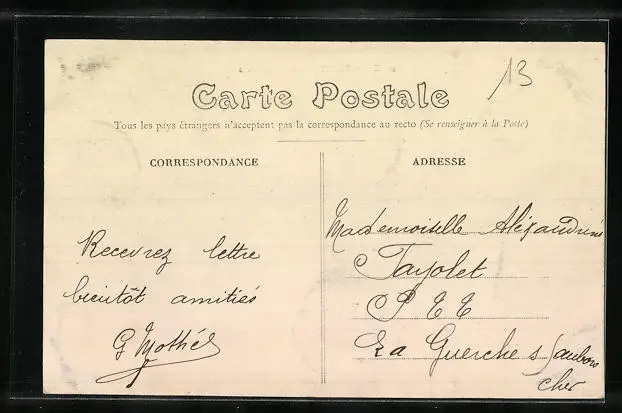 13
Carte Postale
Tous les pays étrangers n'acceptent pas la correspondance au recto (Se renseigner à la Poste)
CORRESPONDANCE
ADRESSE
Recevrez lettre
bientôt amitiés
G Mothié
Mademoiselle Aléxandrine
Tayolet
P E E
La Guerche s
cher